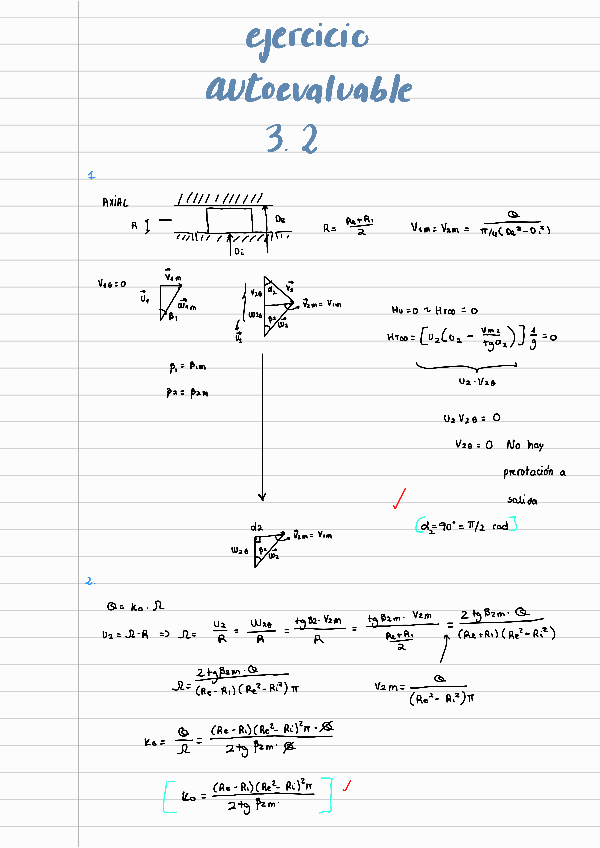 ejercicio
autoevaluable
3.2
1.
AXIAL
R
De
Di
R = (Re+Ri)/2
V₁m = V₂m = Q / (π/4(De²-Di²))
V₁θ = 0
V₁m
U₁
W₁m
β₁
V₂θ
W₂θ
α₂
V₂
β₂
W₂
V₂m = V₁m
Hu = 0 ~ HT∞ = 0
HT∞ = [U₂(U₂ - Vm₂/tgα₂)] 1/g = 0
U₂·V₂θ
β₁ = β₁m
β₂ = β₂m
U₂V₂θ = 0
V₂θ = 0 No hay
prerotación a
salida
[α₂ = 90° = π/2 rad]
α2
W₂θ
β₂
W₂
V₂m = V₁m
2.
Q = K₀ · Ω
U₂ = Ω·R ⇒ Ω = U₂/R = W₂θ/R = tgβ₂·V₂m/R = tgβ₂m·V₂m/((Re+Ri)/2) = 2tgβ₂m·Q/((Re+Ri)(Re²-Ri²))
Ω = 2tgβ₂m·Q/((Re-Ri)(Re²-Ri²)π)
V₂m = Q/((Re²-Ri²)π)
K₀ = Q/Ω = (Re-Ri)(Re²-Ri)²π·Q/(2tgβ₂m·Q)
[K₀ = (Re-Ri)(Re²-Ri)²π/(2tgβ₂m·)]